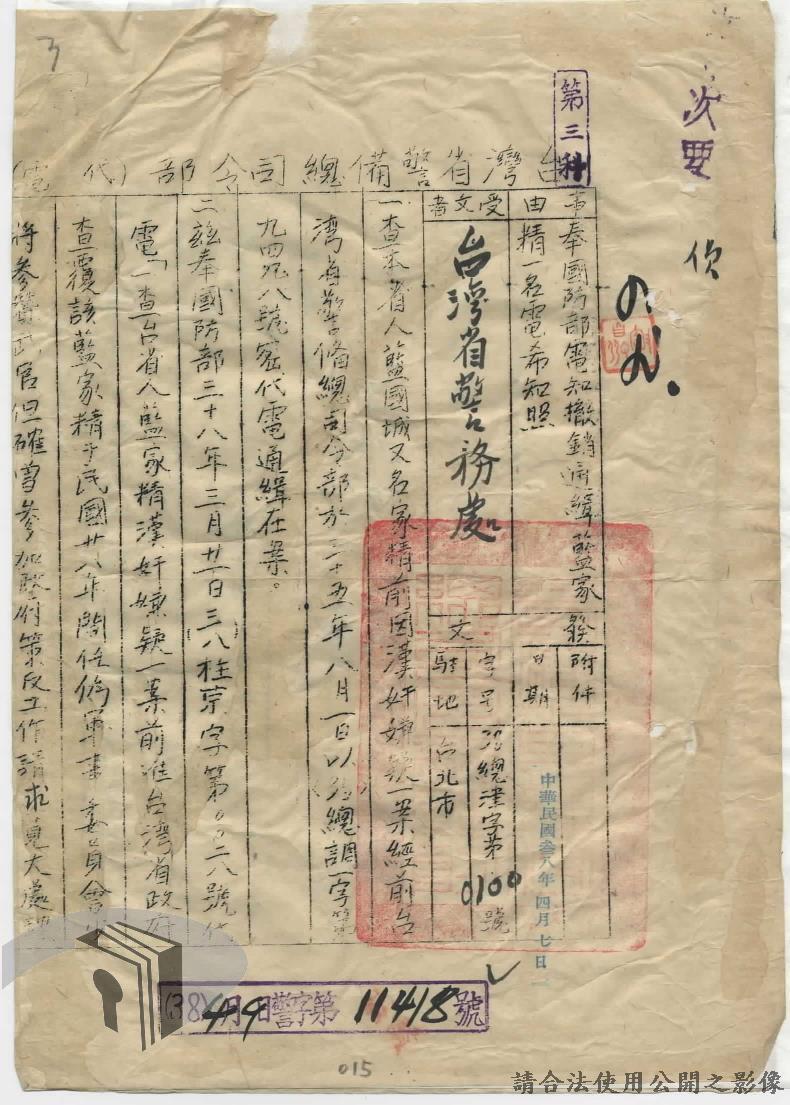 3
次要
第三科
台灣省警備總司令部(代電)
事由
奉國防部電知撤銷通緝藍家
精一名電希知照
受文者
台灣省警務處
發文
附件
日期
中華民國叁八年四月七日
字号
總津字第0100號
駐地
台北市
一、查本省人藍國城又名家精前因漢奸嫌疑一案經前台
灣省警備總司令部於三十五年八月一日以總調一字第
九四九八號密代電通緝在案。
二、茲奉國防部三十八年三月廿一日(三八)桂京字第〇〇二八號代
電「一查台省人藍家精漢奸嫌疑一案前准台灣省政府
查覆該藍家精于民國廿八年間任偽軍事委員會
將參贊武官但確曾參加
策反工作請求寬大處理
(38)4月9日警字第11418號
015
請合法使用公開之影像